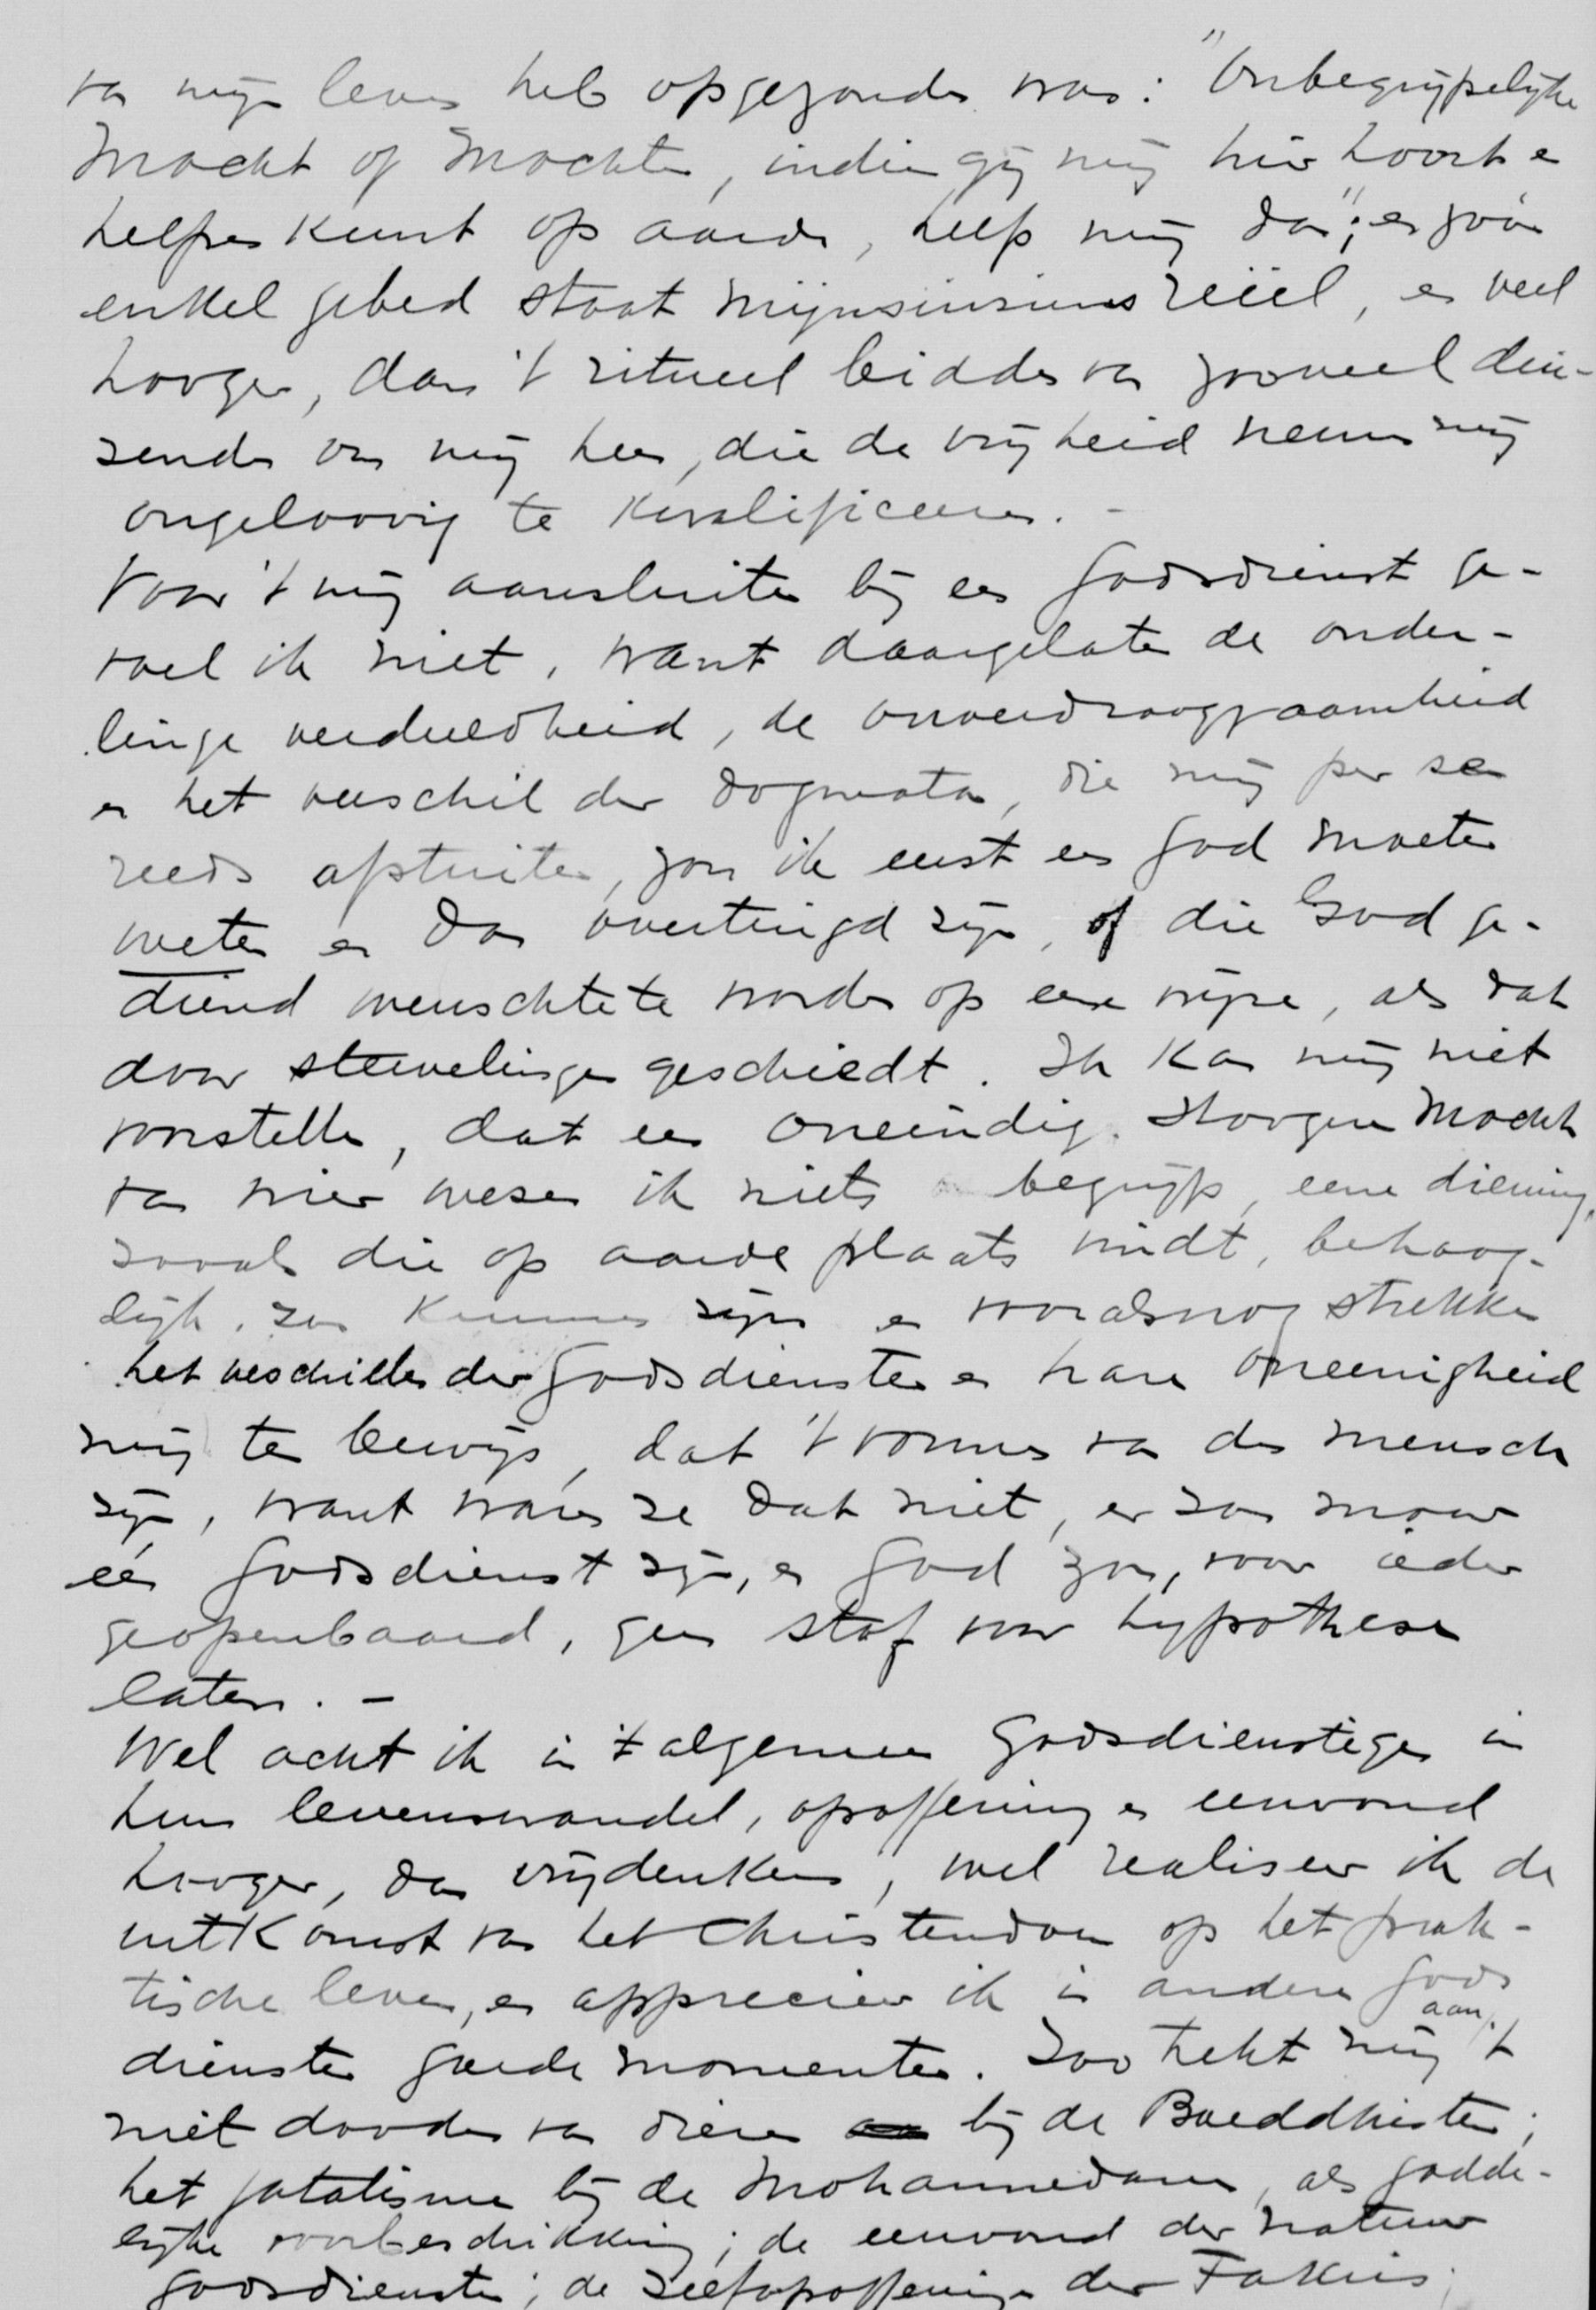 van mijn leven heb opgezonden was: "Onbegrijpelijke
Macht of Machten, indien gij mij hier hoort en
helpen kunt op aarde, help mij dan"; en zóó'n
enkel gebed staat mijnsinziens reëel, en veel
hooger, dan 't ritueel bidden van zooveel dui-
zenden om mij heen, die de vrijheid nemen mij
ongeloovig te kwalificeeren. -
Voor 't mij aansluiten bij een godsdienst ge-
voel ik niet, want daargelaten de onder-
linge verdeeldheid, de onverdraagzaamheid
en het verschil der dogmata, die mij per se
reeds afstuiten, zou ik eerst een God moeten
weten en dan overtuigd zijn, of die God ge-
diend wenschte te worden op eene wijze, als dat
door stervelingen geschiedt. Ik kan mij niet
voorstellen, dat een oneindig Hoogere Macht
van wier wezen ik niets begrijp, eene diening,
zooals die op aarde plaats vindt, behaag-
lijk zou kunnen zijn en vooralsnog strekken
het verschillen der godsdiensten en hare oneenigheid
mij ten bewijs, dat 't vormen van den mensch
zijn, want waren ze dat niet, er zou maar
één godsdienst zijn, en God zou, voor ieder
geopenbaard, geen stof voor hypothesen
laten. -
Wel acht ik in 't algemeen godsdienstigen in
hun levenswandel, opoffering en eenvoud
hooger, dan vrijdenkers, wel realiseer ik de
uitkomst van het Christendom op het prak-
tische leven, en apprecieer ik in andere gods
diensten goede momenten. Zoo trekt mij 't aan
niet dooden van dieren bij de Boeddhisten;
het fatalisme bij de Mohammedanen, als godde-
lijke voorbeschikking; de eenvoud der natuur
godsdiensten; de zelfopofferingen der Fakirs;